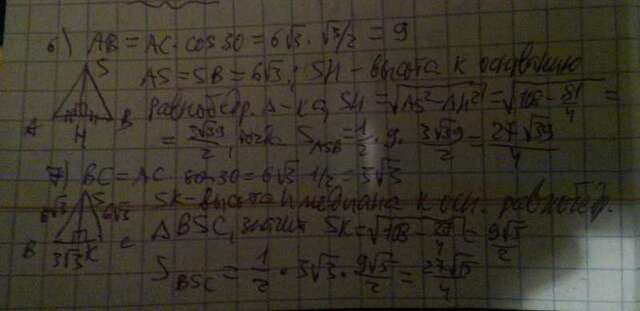 6) AB = AC · cos 30 = 6√3 · √3/2 = 9
S
AS = SB = 6√3; SH – высота к основанию
равнобедр. Δ-ка, SH = √(AS² – AH²) = √(108 – 81/4) =
A H B
= 3√39/2, S_ASB = 1/2 · 9 · 3√39/2 = 27√39/4
7) BC = AC · sin 30 = 6√3 · 1/2 = 3√3
S
6√3 6√3 SK – высота и медиана к осн. равнобедр.
B K C ΔBSC, значит SK = √(108 – 27/4) = 9√5/2
3√3
S_BSC = 1/2 · 3√3 · 9√5/2 = 27√15/4